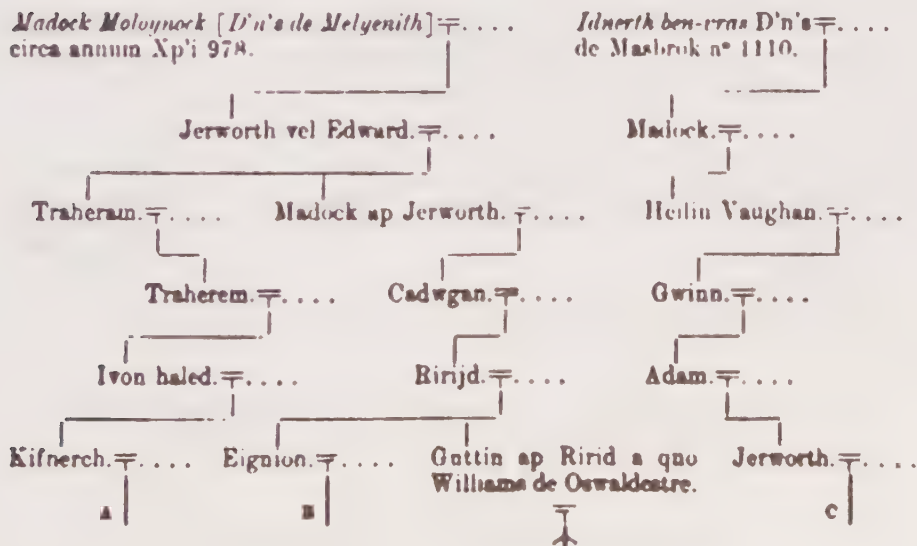 Madock Moloynock [D'n's de Melyenith] = . . . .
circa annum Xp'i 978.
Idnerth ben-vras D'n's = . . . .
de Masbrok nº 1110.
Jerworth vel Edward. = . . . .
Madock. = . . . .
Traheram. = . . . .
Madock ap Jerworth. = . . . .
Heilin Vaughan. = . . . .
Traherem. = . . . .
Cadwgan. = . . . .
Gwinn. = . . . .
Ivon haled. = . . . .
Ririjd. = . . . .
Adam. = . . . .
Kifnerch. = . . . .
Eignion. = . . . .
Guttin ap Ririd a quo
Williams de Oswaldestre.
Jerworth. = . . . .
A
B
C